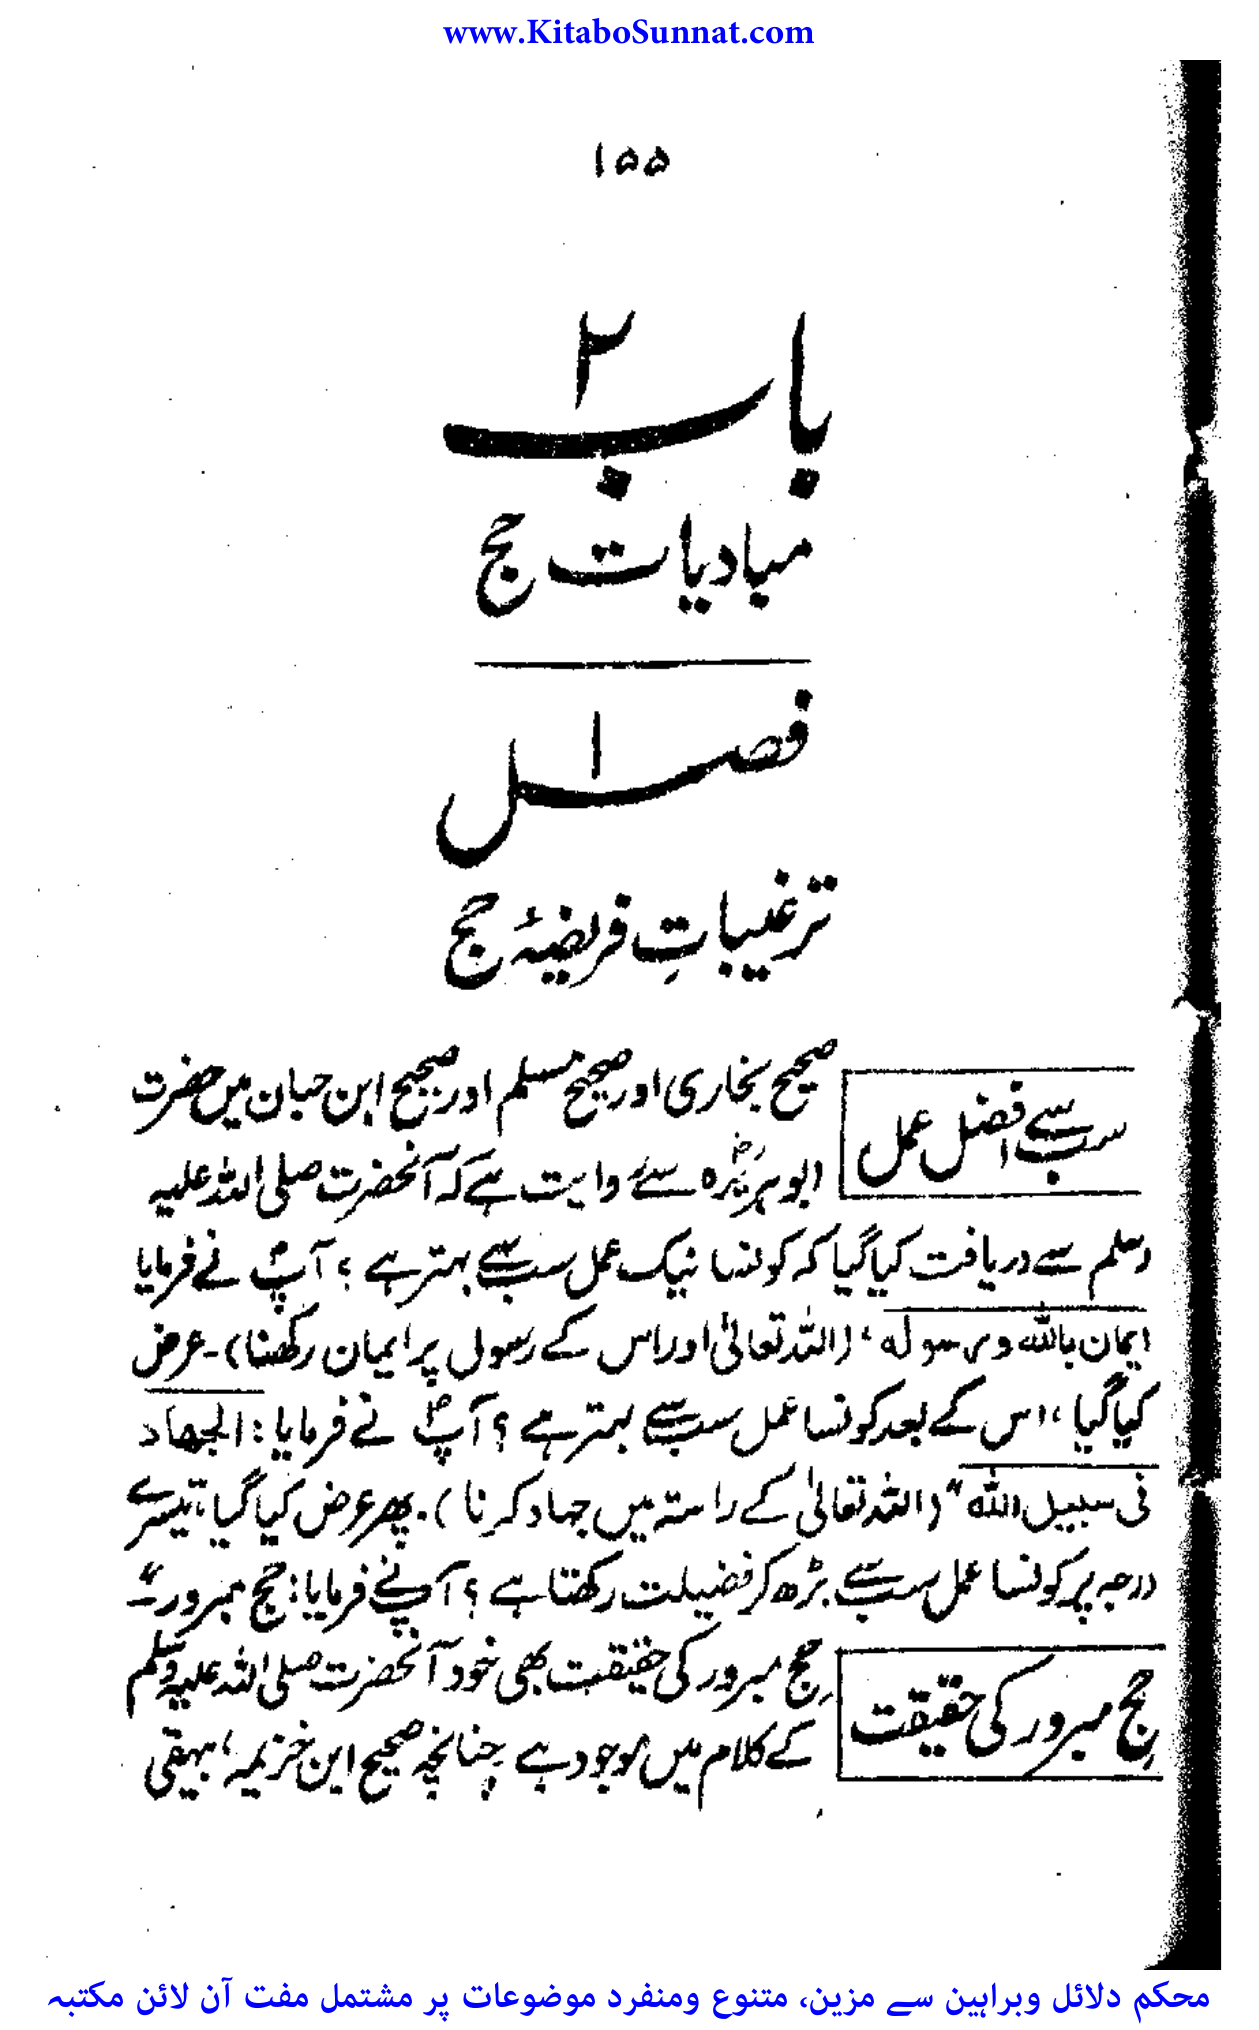 www.KitaboSunnat.com
۱۵۵
باب ۲
مبادیات حج
فصل ۱
ترغیباتِ فریضۂ حج
سب سے افضل عمل
صحیح بخاری اور صحیح مسلم اور صحیح ابن حبان میں حضرت
ابوہریرہؓ سے روایت ہے کہ آنحضرت صلی اللہ علیہ
وسلم سے دریافت کیا گیا کہ کونسا نیک عمل سب سے بہتر ہے ؟ آپؐ نے فرمایا
ایمان باللہ ورسولہ، (اللہ تعالیٰ اور اس کے رسول پر ایمان رکھنا)۔ عرض
کیا گیا، اس کے بعد کونسا عمل سب سے بہتر ہے ؟ آپؐ نے فرمایا: الجھاد
فی سبیل اللہ" (اللہ تعالیٰ کے راستہ میں جہاد کرنا)۔ پھر عرض کیا گیا، تیسرے
درجہ پر کونسا عمل سب سے بڑھ کر فضیلت رکھتا ہے ؟ آپ نے فرمایا: حج مبرور"۔
حجِ مبرور کی حقیقت
حجِ مبرور کی حقیقت بھی خود آنحضرت صلی اللہ علیہ وسلم
کے کلام میں موجود ہے چنانچہ صحیح ابن خزیمہ، بیہقی
محکم دلائل وبراہین سے مزین، متنوع ومنفرد موضوعات پر مشتمل مفت آن لائن مکتبہ